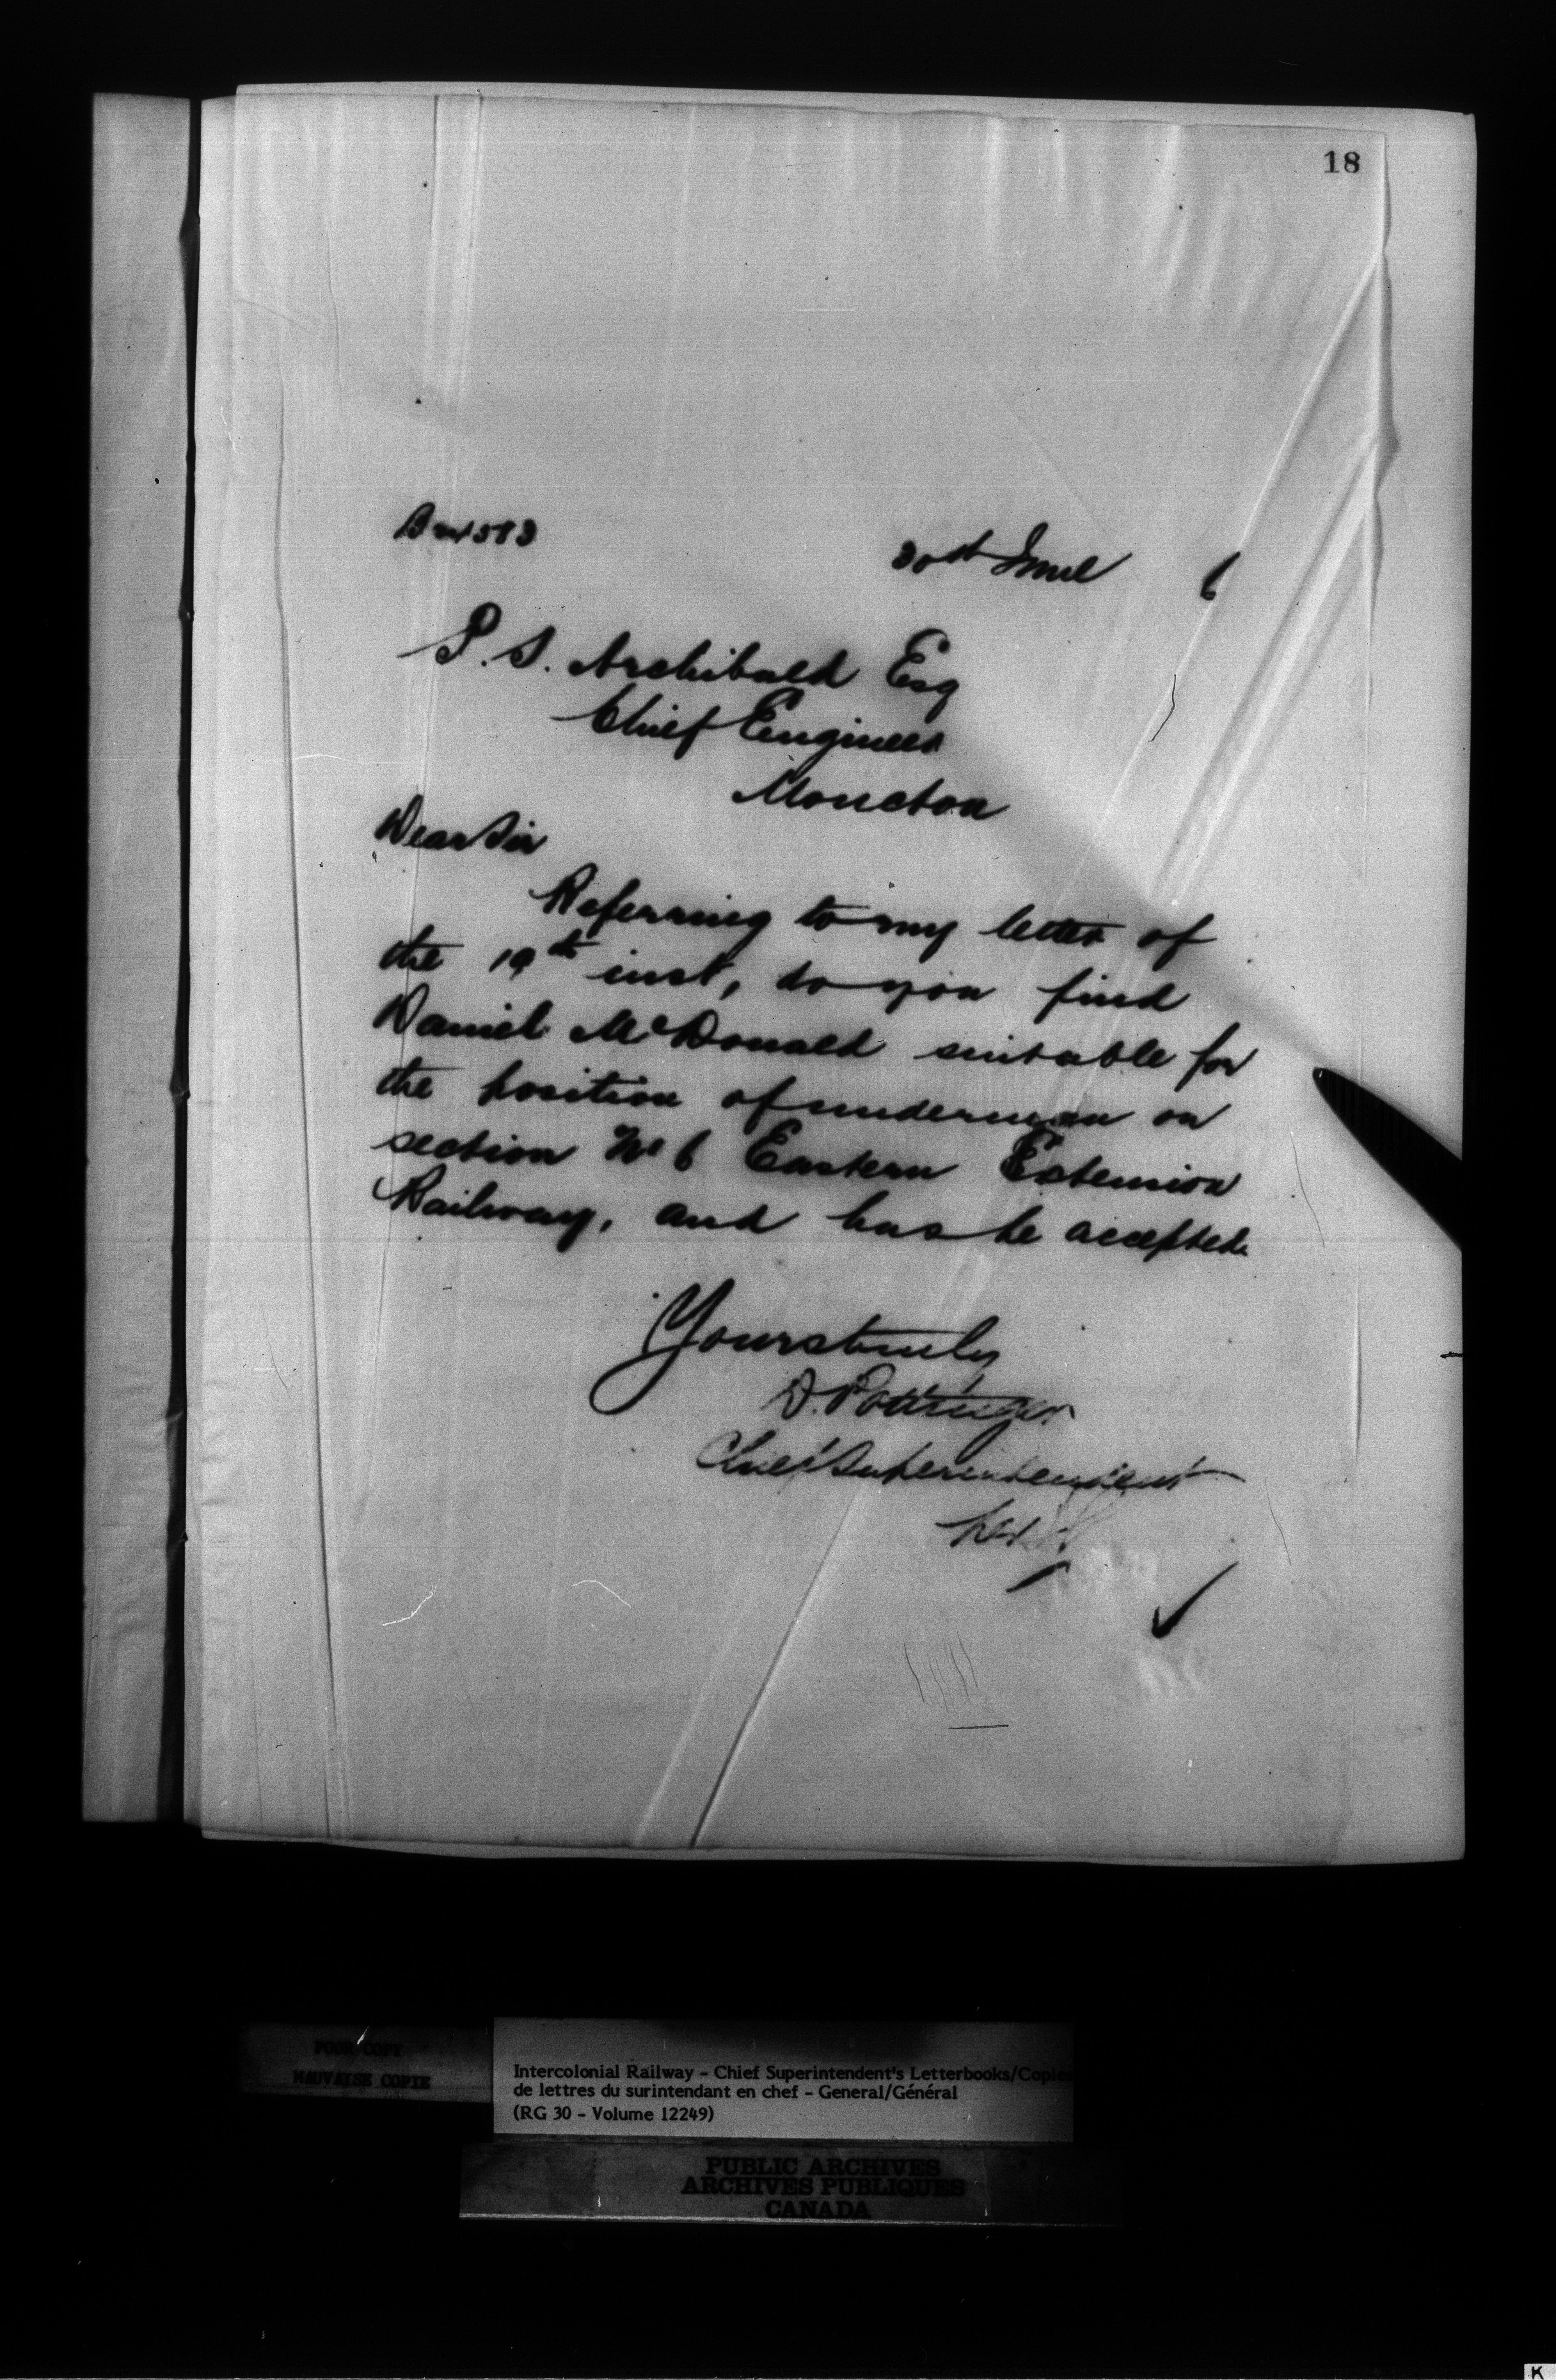 18
30th June 6
P. S. Archibald Esq
Chief Engineer
Moncton
Dear Sir
Referring to my letter of
the 19th inst, do you find
Daniel McDonald suitable for
the position of underman on
section No 6 Eastern Extension
Railway, and has he accepted.
Yours truly
D. Pottinger
Chief Superintendent
POOR COPY
MAUVAISE COPIE
Intercolonial Railway - Chief Superintendent's Letterbooks/Copies
de lettres du surintendant en chef - General/Général
(RG 30 - Volume 12249)
PUBLIC ARCHIVES
ARCHIVES PUBLIQUES
CANADA
K